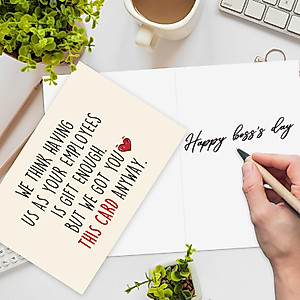 WE THINK HAVING
US AS YOUR EMPLOYEES
IS GIFT ENOUGH,
BUT WE GOT YOU
THIS CARD ANYWAY.
Happy boss's day